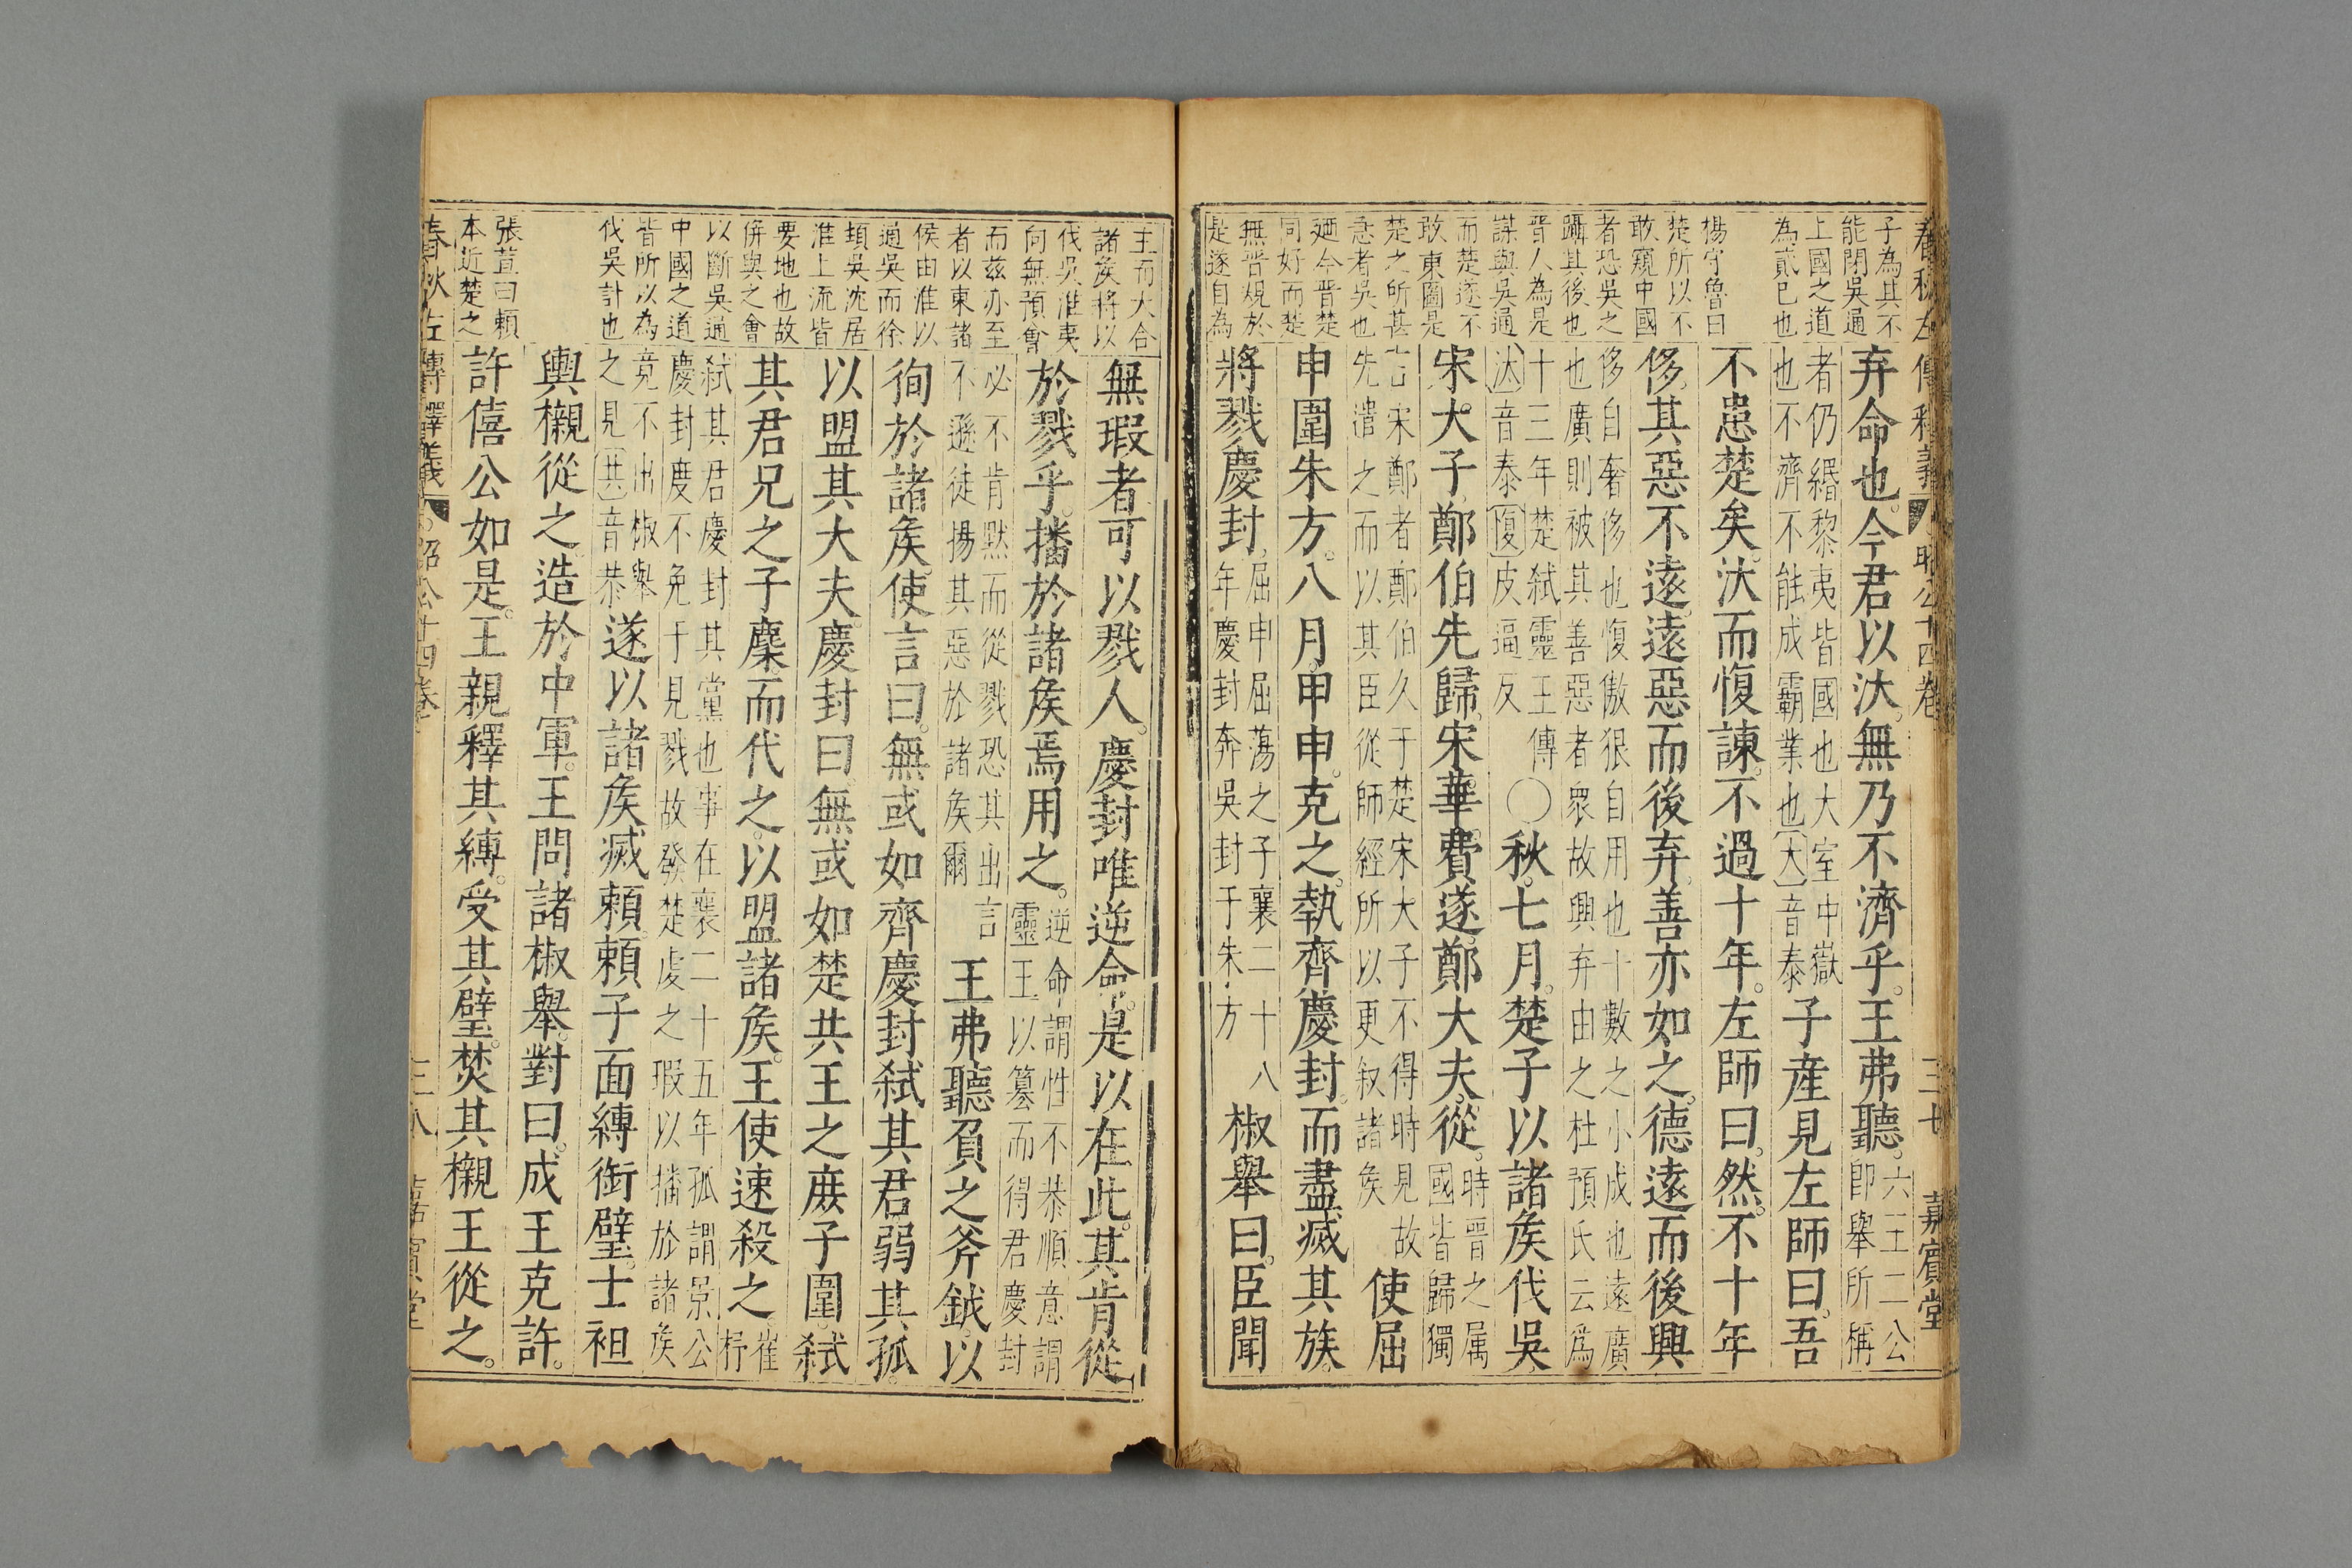 春秋左傳釋義 昭公十四卷 三七 嘉賓堂
子為其不
能閉吳通
上國之道
為貳巳也
楊守魯曰
楚所以不
敢窺中國
者恐吳之
躡其後也
晋人為是
謀與吳通
而楚遂不
敢東圖是
楚之所甚
惎者吳也
廼今晋楚
同好而楚
無晋䂓於
是遂自為
弃命也今君以汰無乃不濟乎王弗聽六王二公即舉所稱
者仍緡黎夷皆國也大室中嶽也不濟不能成霸業也大音泰子産見左師曰吾
不患楚矣汰而愎諫不過十年左師曰然不十年
侈其惡不遠遠惡而後弃善亦如之德遠而後興
侈自奢侈也愎傲狠自用也十數之小成也遠廣也廣則被其善惡者衆故興弃由之杜預氏云爲
十三年楚弑靈王傳汰音泰愎皮逼反〇秋七月楚子以諸矦伐吳
宋大子鄭伯先歸宋華費遂鄭大夫從時晋之属國皆歸獨
言宋鄭者鄭伯久于楚宋大子不得時見故先遣之而以其臣從師經所以更叙諸矦使屈
申圍朱方八月甲申克之執齊慶封而盡滅其族
將戮慶封屈申屈蕩之子襄二十八年慶封奔吳封于朱方椒舉曰臣聞
王而大合
諸矦將以
伐吳淮夷
向無預會
而茲亦至
者以東諸
侯由淮以
通吳而徐
頃吳沈居
淮上流皆
要地也故
併與之會
以斷吳通
中國之道
皆所以為
伐吳計也
張萱曰頼
本近楚之
無瑕者可以戮人慶封唯逆命是以在此其肯從
於戮乎播於諸矦焉用之逆命謂性不恭順意謂靈王以簒而得君慶封
必不肯默而從戮恐其出言不遜徒揚其惡於諸矦爾王弗聽負之斧鉞以
徇於諸矦使言曰無或如齊慶封弑其君弱其孤
以盟其大夫慶封曰無或如楚共王之庶子圍弑
其君兄之子麇而代之以盟諸矦王使速殺之崔杼
弑其君慶封其黨也事在襄二十五年孤謂景公慶封度不免于見戮故發楚䖍之瑕以播於諸矦
竟不出椒舉之見共音恭遂以諸矦滅頼頼子面縛銜璧士袒
輿櫬從之造於中軍王問諸椒舉對曰成王克許
許僖公如是王親釋其縛受其璧焚其櫬王從之
春秋左傳釋義 昭公十四卷 三八 嘉賓堂